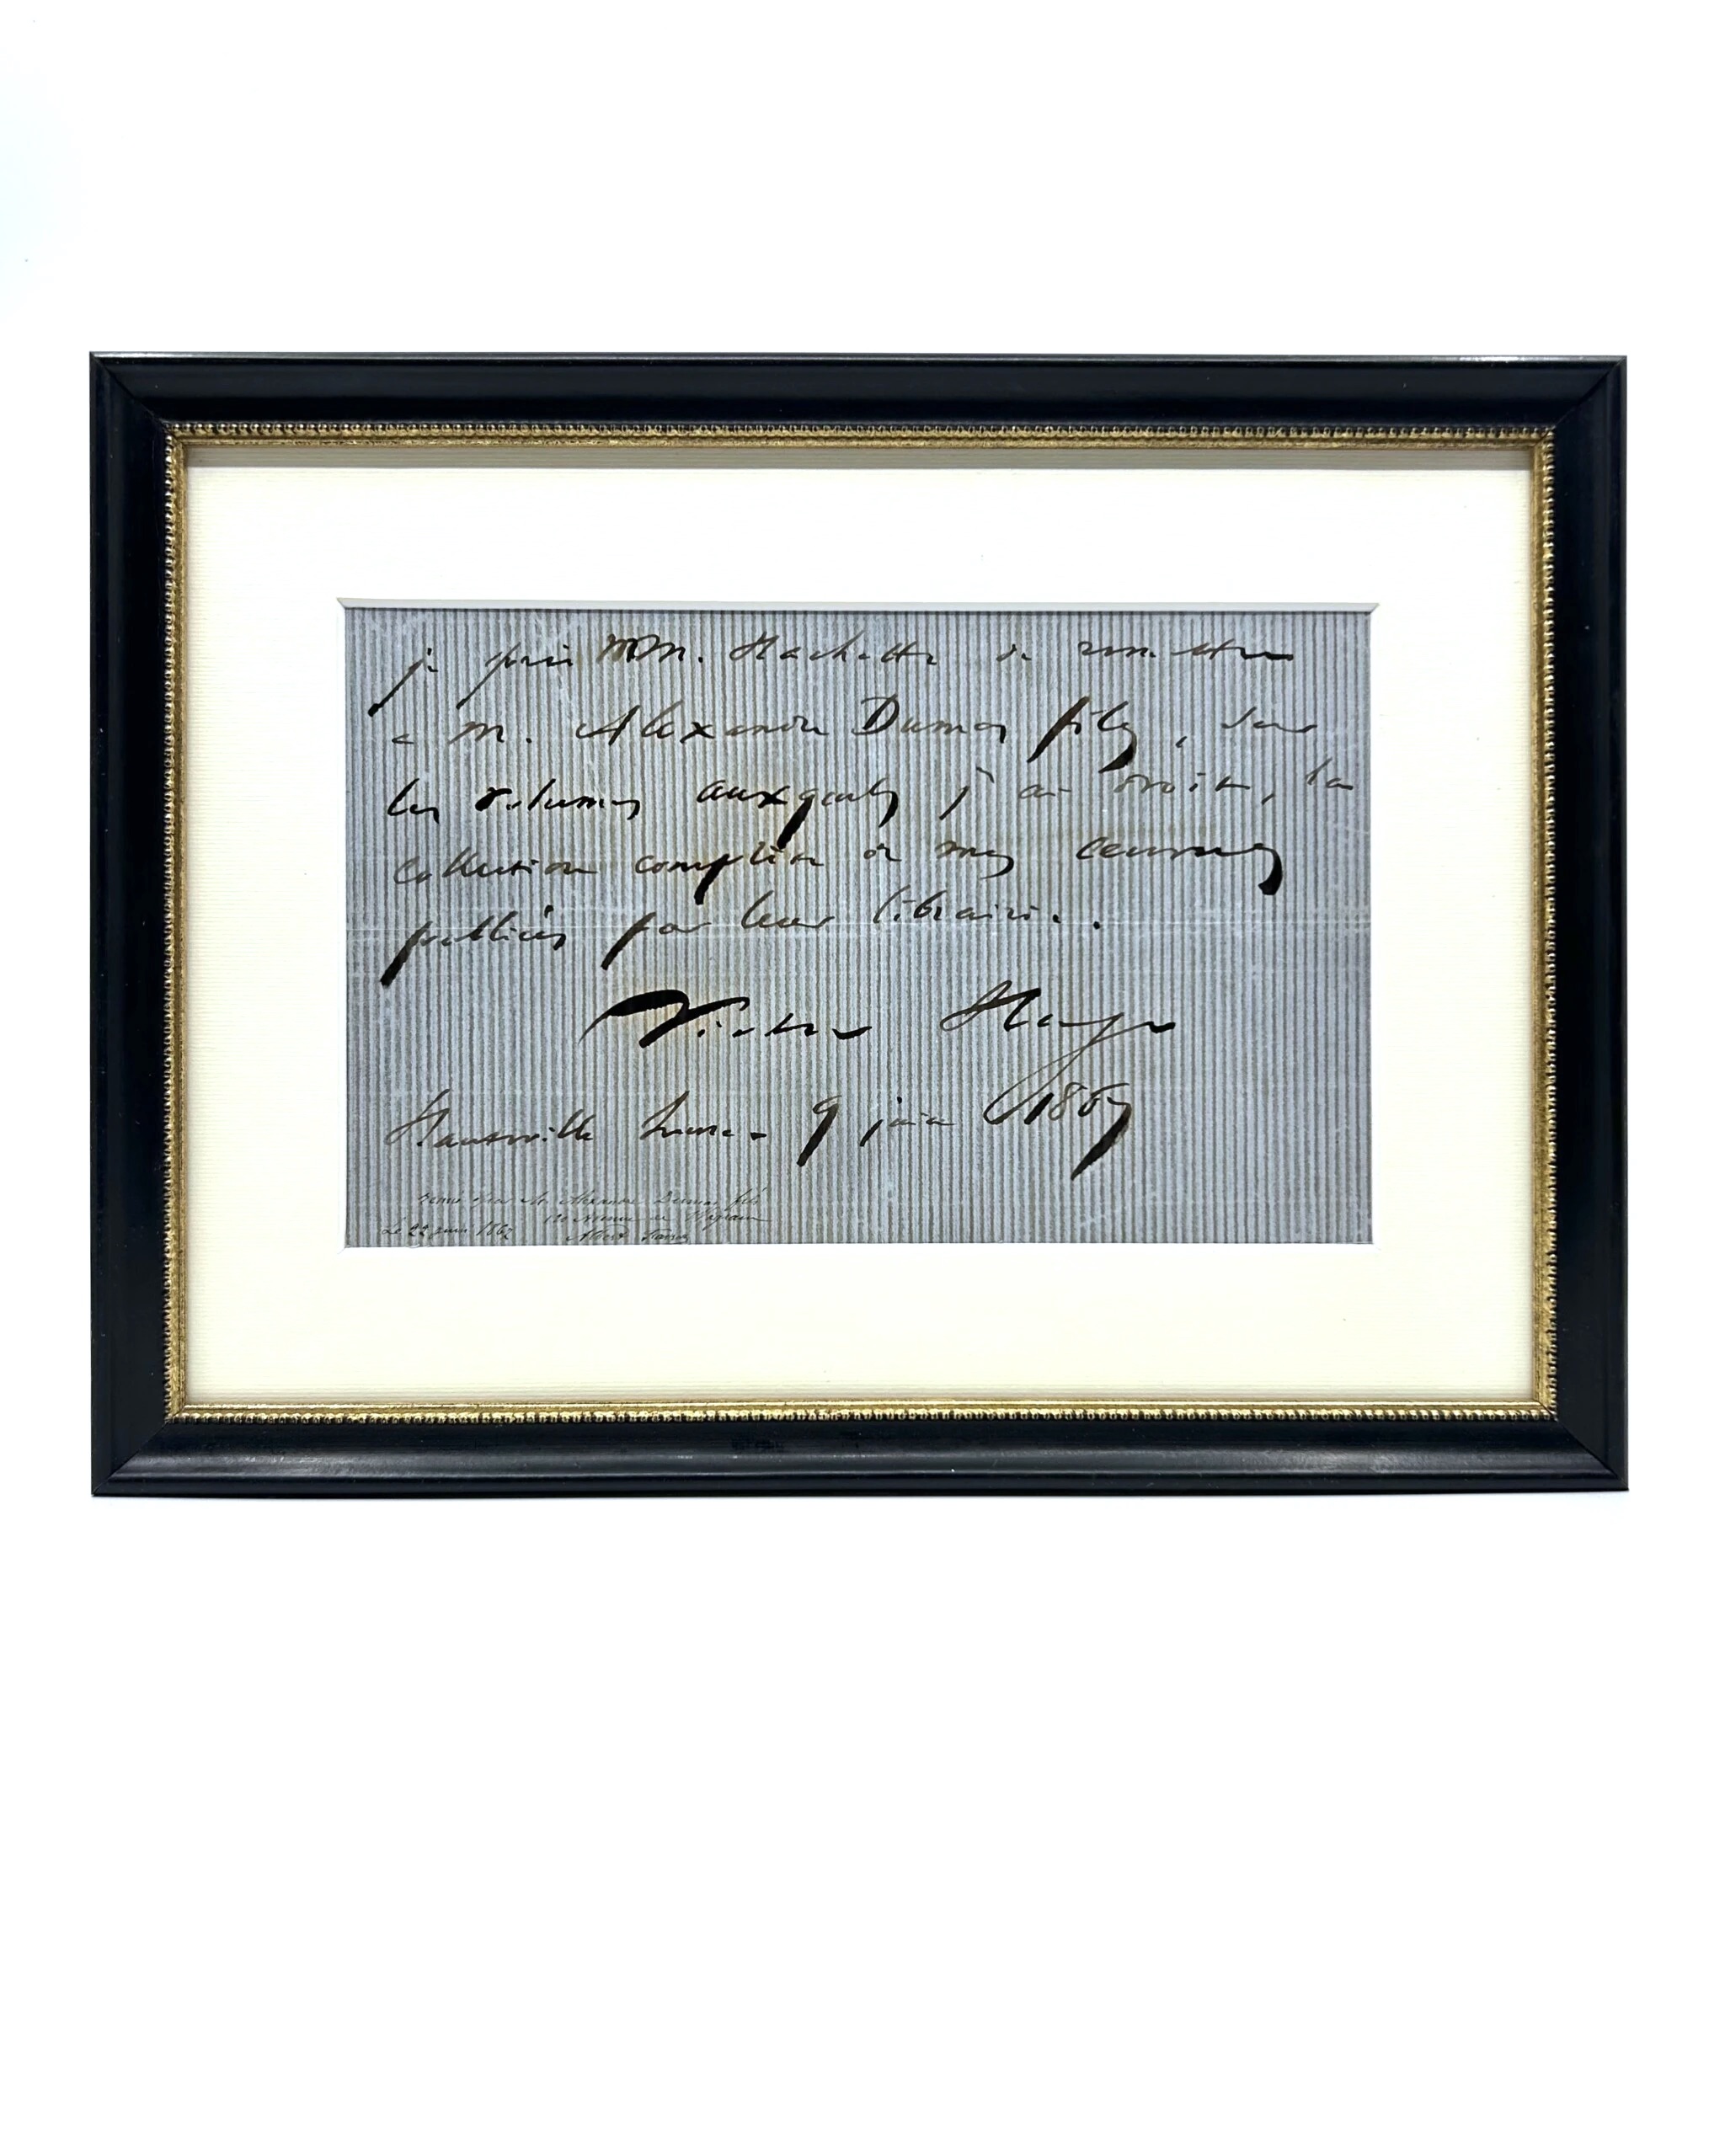 je prie MM. Hachette de remettre
à M. Alexandre Dumas fils, sur
les volumes auxquels j'ai droit, la
collection complète de mes œuvres
publiées par leur librairie.
Victor Hugo
Hauteville house - 9 juin 1867
M. Alexandre Dumas fils
Le 22 juin 1867